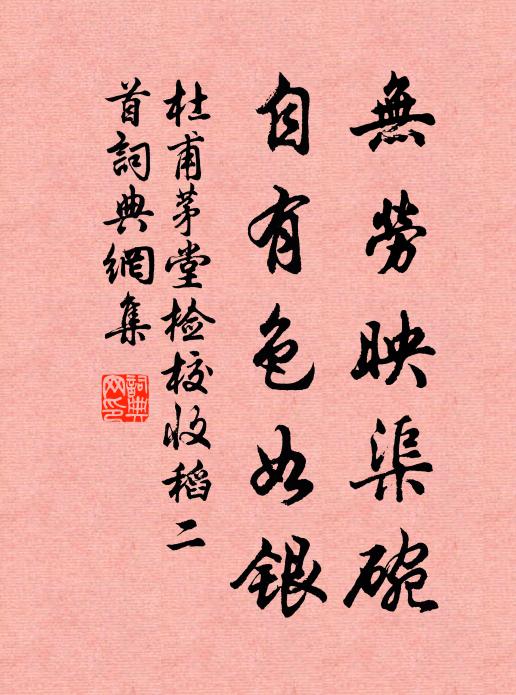 無勞映渠碗
自有色如銀
杜甫茅堂檢校收稻二
首詞典網集
詞典網印